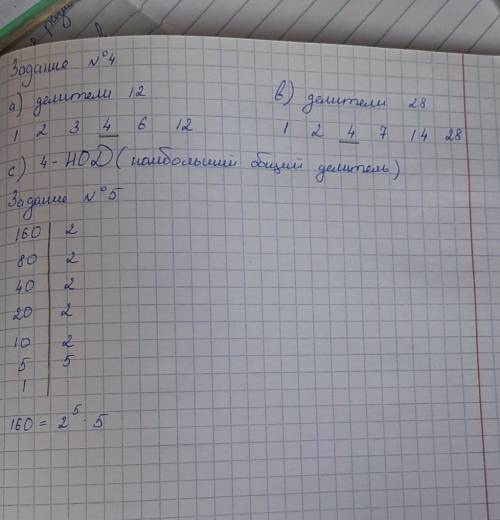 Задание №4
а) делители 12
1 2 3 4 6 12
в) делители 28
1 2 4 7 14 28
с) 4-НОД (наибольший общий делитель)
Задание №5
160 | 2
80 | 2
40 | 2
20 | 2
10 | 2
5 | 5
1 |
160 = 2⁵ · 5